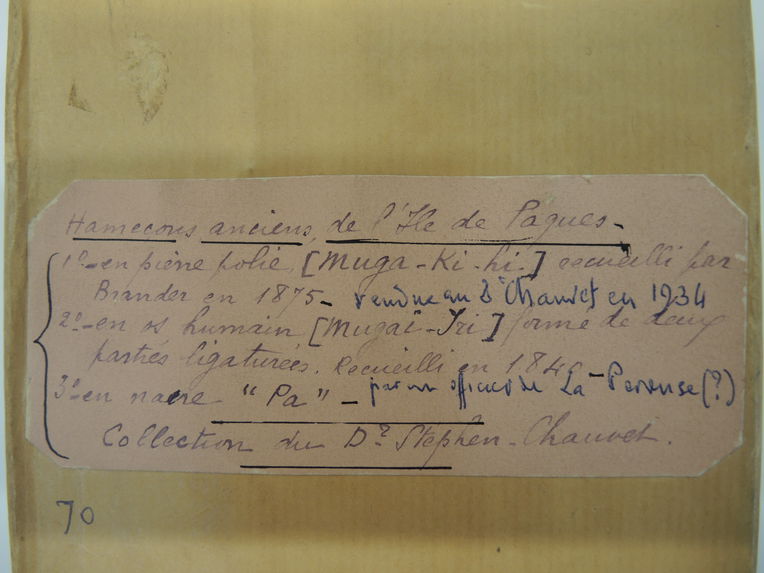 Hamecons anciens, de l'Ile de Paques-
1º-en pierre polie, [Muga-Ki-hi.] recueilli par
Brander en 1875- vendue au Dr Chauvet en 1934
2º-en os humain [Mugai-Iri] formé de deux
parties ligaturées. Recueilli en 1840
3º-en nacre "Pa" - par un officier de La-Perouse(?)
Collection du Dr Stephen-Chauvet.
70